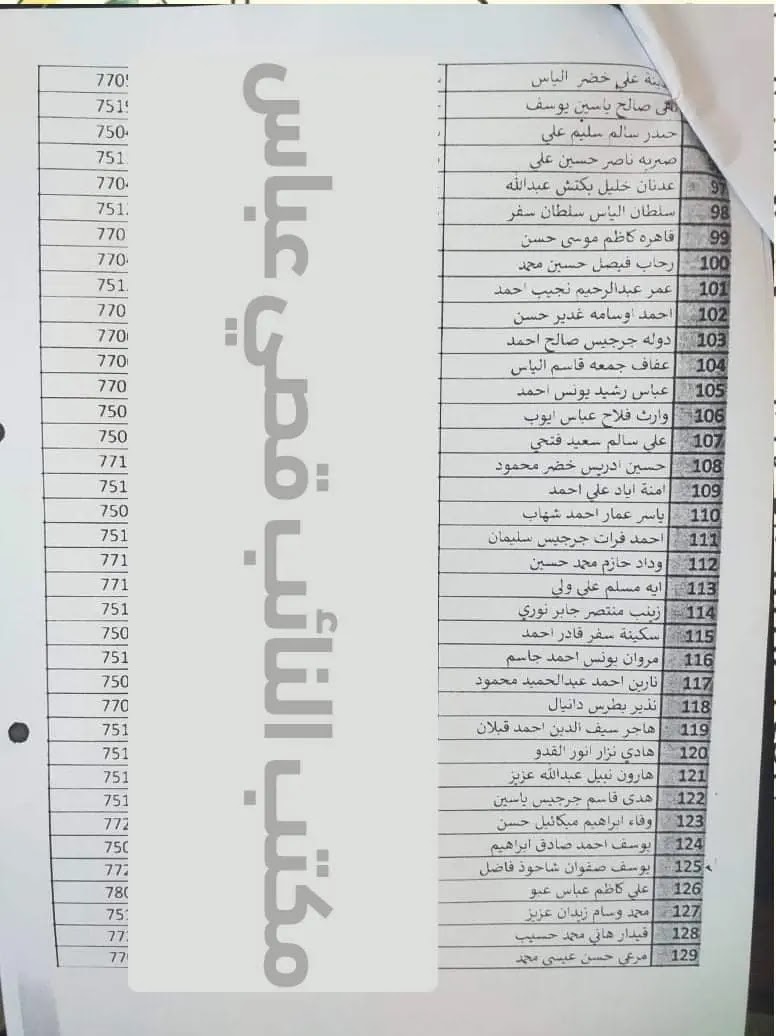 علي خضر الياس 770
صالح ياسين يوسف 751
حيدر سالم سليم علي 750
صبريه ناصر حسين علي 751
97 عدنان خليل بكتش عبدالله 770
98 سلطان الياس سلطان سفر 751
99 قاهره كاظم موسى حسن 770
100 رحاب فيصل حسين محمد 770
101 عمر عبدالرحيم نجيب احمد 751
102 احمد اوسامه غدير حسن 770
103 دوله جرجيس صالح احمد 770
104 عفاف جمعه قاسم الياس 770
105 عباس رشيد يونس احمد 770
106 وارث فلاح عباس ايوب 750
107 علي سالم سعيد فتحي 750
108 حسين ادريس خضر محمود 771
109 امنة اياد علي احمد 751
110 ياسر عمار احمد شهاب 750
111 احمد فرات جرجيس سليمان 751
112 وداد حازم محمد حسين 771
113 ايه مسلم علي ولي 771
114 زينب منتصر جابر نوري 751
115 سكينة سفر قادر احمد 750
116 مروان يونس احمد جاسم 751
117 نارين احمد عبدالحميد محمود 750
118 نذير بطرس دانيال 770
119 هاجر سيف الدين احمد قبلان 751
120 هادي نزار انور القدو 751
121 هارون نبيل عبدالله عزيز 751
122 هدى قاسم جرجيس ياسين 751
123 وفاء ابراهيم ميكائيل حسن 772
124 يوسف احمد صادق ابراهيم 750
125 يوسف صفوان شاحوذ فاضل 772
126 علي كاظم عباس عبو 780
127 محمد وسام زيدان عزيز 751
128 قيدار هاني محمد حسيب 77
129 مرعي حسن عيسى محمد 77
مكتب النائب قصي عباس